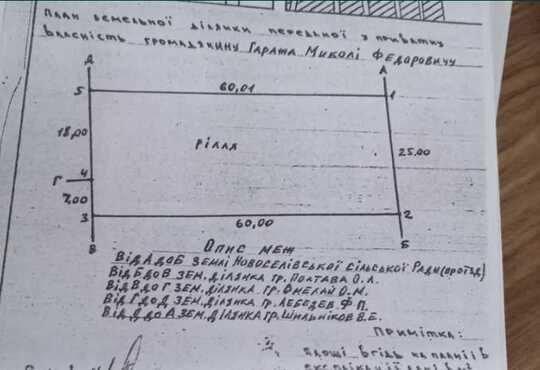 План земельної ділянки переданої у приватну
власність громадянину Гаража Миколі Федоровичу
Д
А
5
60,01
1
18,00
рілля
25.00
Г
4
7,00
3
60,00
2
В
Б
Опис меж
Від А до Б землі Новоселівської сільської Ради (проїзд)
Від Б до В зем. ділянка гр. Полтава О.А.
Від В до Г зем. ділянка гр. Омелай О.М.
Від Г до Д зем. ділянка гр. Лебедев Ф П.
Від Д до А зем. ділянка гр. Шильніков В.Е.
Примітка:
площі вгідь на плані і в